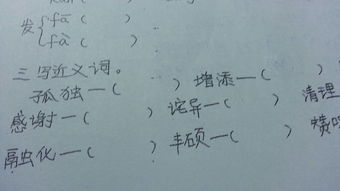 发{fā (    )
fà (    )
三 写近义词。
孤独—(    ) 增添—(    )
感谢—(    ) 诧异—(    ) 清理
融化—(    ) 丰硕—(    )